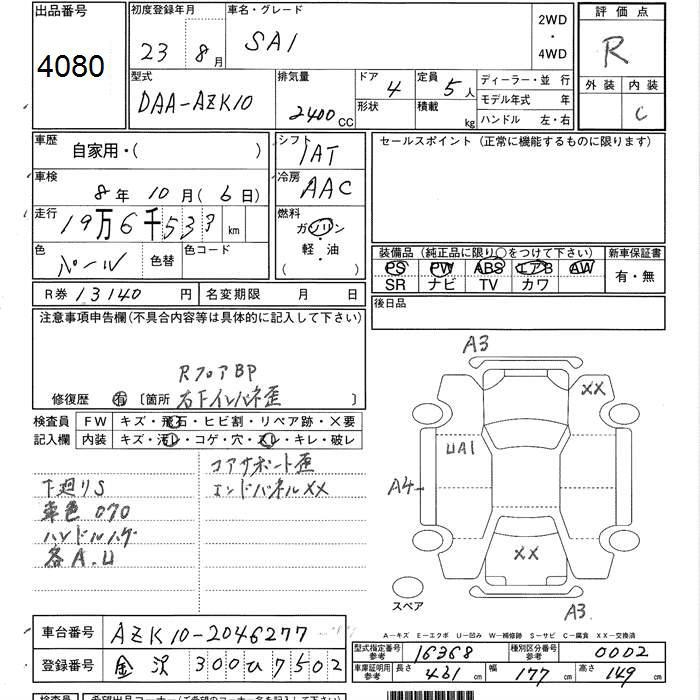 出品番号
4080
初度登録年月
23 8月
車名・グレード
SAI
2WD
・
4WD
評価点
R
外装 内装
C
型式
DAA-AZK10
排気量
2400cc
ドア 4
形状
定員 5人
積載 kg
ディーラー・並行
モデル年式 年
ハンドル 左・右
車歴
自家用・( )
シフト
IAT
車検
8年 10月(6日)
冷房
AAC
走行
19万6千533km
燃料
ガソリン
・
軽・油
( )
色
パール
色替
色コード
R券 13140円
名変期限 月 日
セールスポイント(正常に機能するものに限ります)
装備品(純正品に限り○をつけて下さい)
PS PW ABS エアB AW
SR ナビ TV カワ
新車保証書
有・無
後日品
注意事項申告欄(不具合内容等は具体的に記入して下さい)
RフロアBP
修復歴 有 〔箇所 右Fインパネ歪
検査員
記入欄
FW キズ・飛石・ヒビ割・リペア跡・×要
内装 キズ・汚レ・コゲ・穴・スレ・キレ・破レ
下廻りS
車色 070
ハンドルハゲ
各A.U
コアサポート歪
エンドパネルXX
A3
XX
UA1
A4
XX
スペア
A3
A-キズ E-エクボ U-凹み W-補修跡 S-サビ C-腐食 XX-交換済
車台番号
AZK10-2046277
登録番号
金沢 300 ひ 7502
型式指定番号
参考
16368
種別区分番号
参考
0002
車庫証明用
参考
長さ 461cm
幅 177cm
高さ 149cm
検査員
希望出品コーナー(ご希望のコーナー名をご記入下さい)